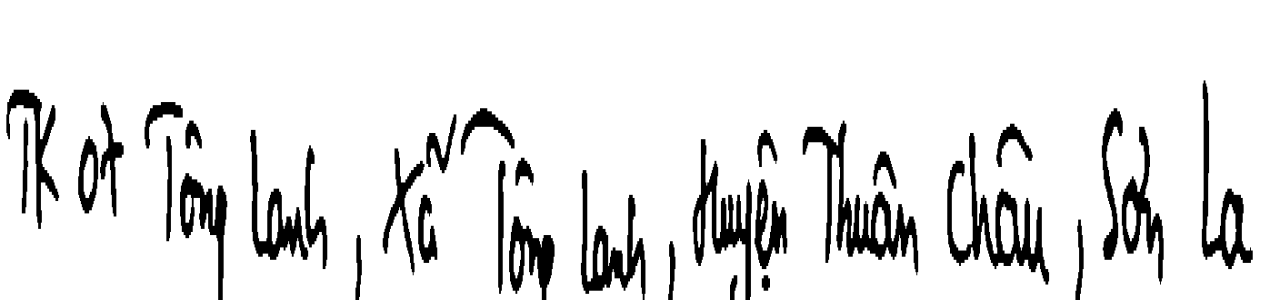 TK 07 Tông Lanh, Xã Tông Lanh, Huyện Thuân Châu, Sơn La